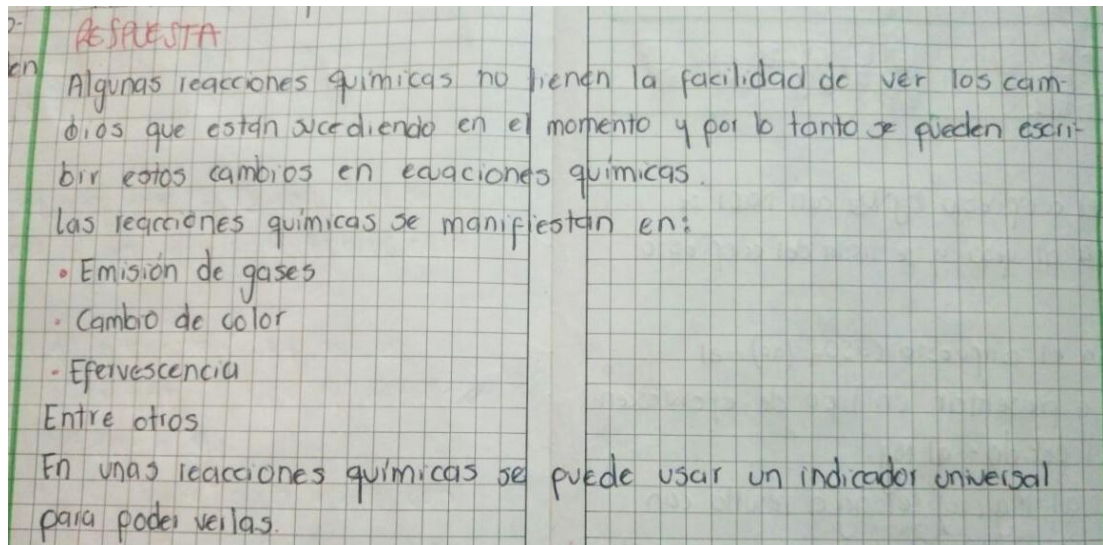 RESPUESTA
Algunas reacciones químicas no tienen la facilidad de ver los cam-
bios que están sucediendo en el momento y por lo tanto se pueden escri-
bir estos cambios en ecuaciones químicas.
las reacciones químicas se manifiestan en:
• Emisión de gases
• Cambio de color
• Efervescencia
Entre otros
En unas reacciones químicas se puede usar un indicador universal
para poder verlas.